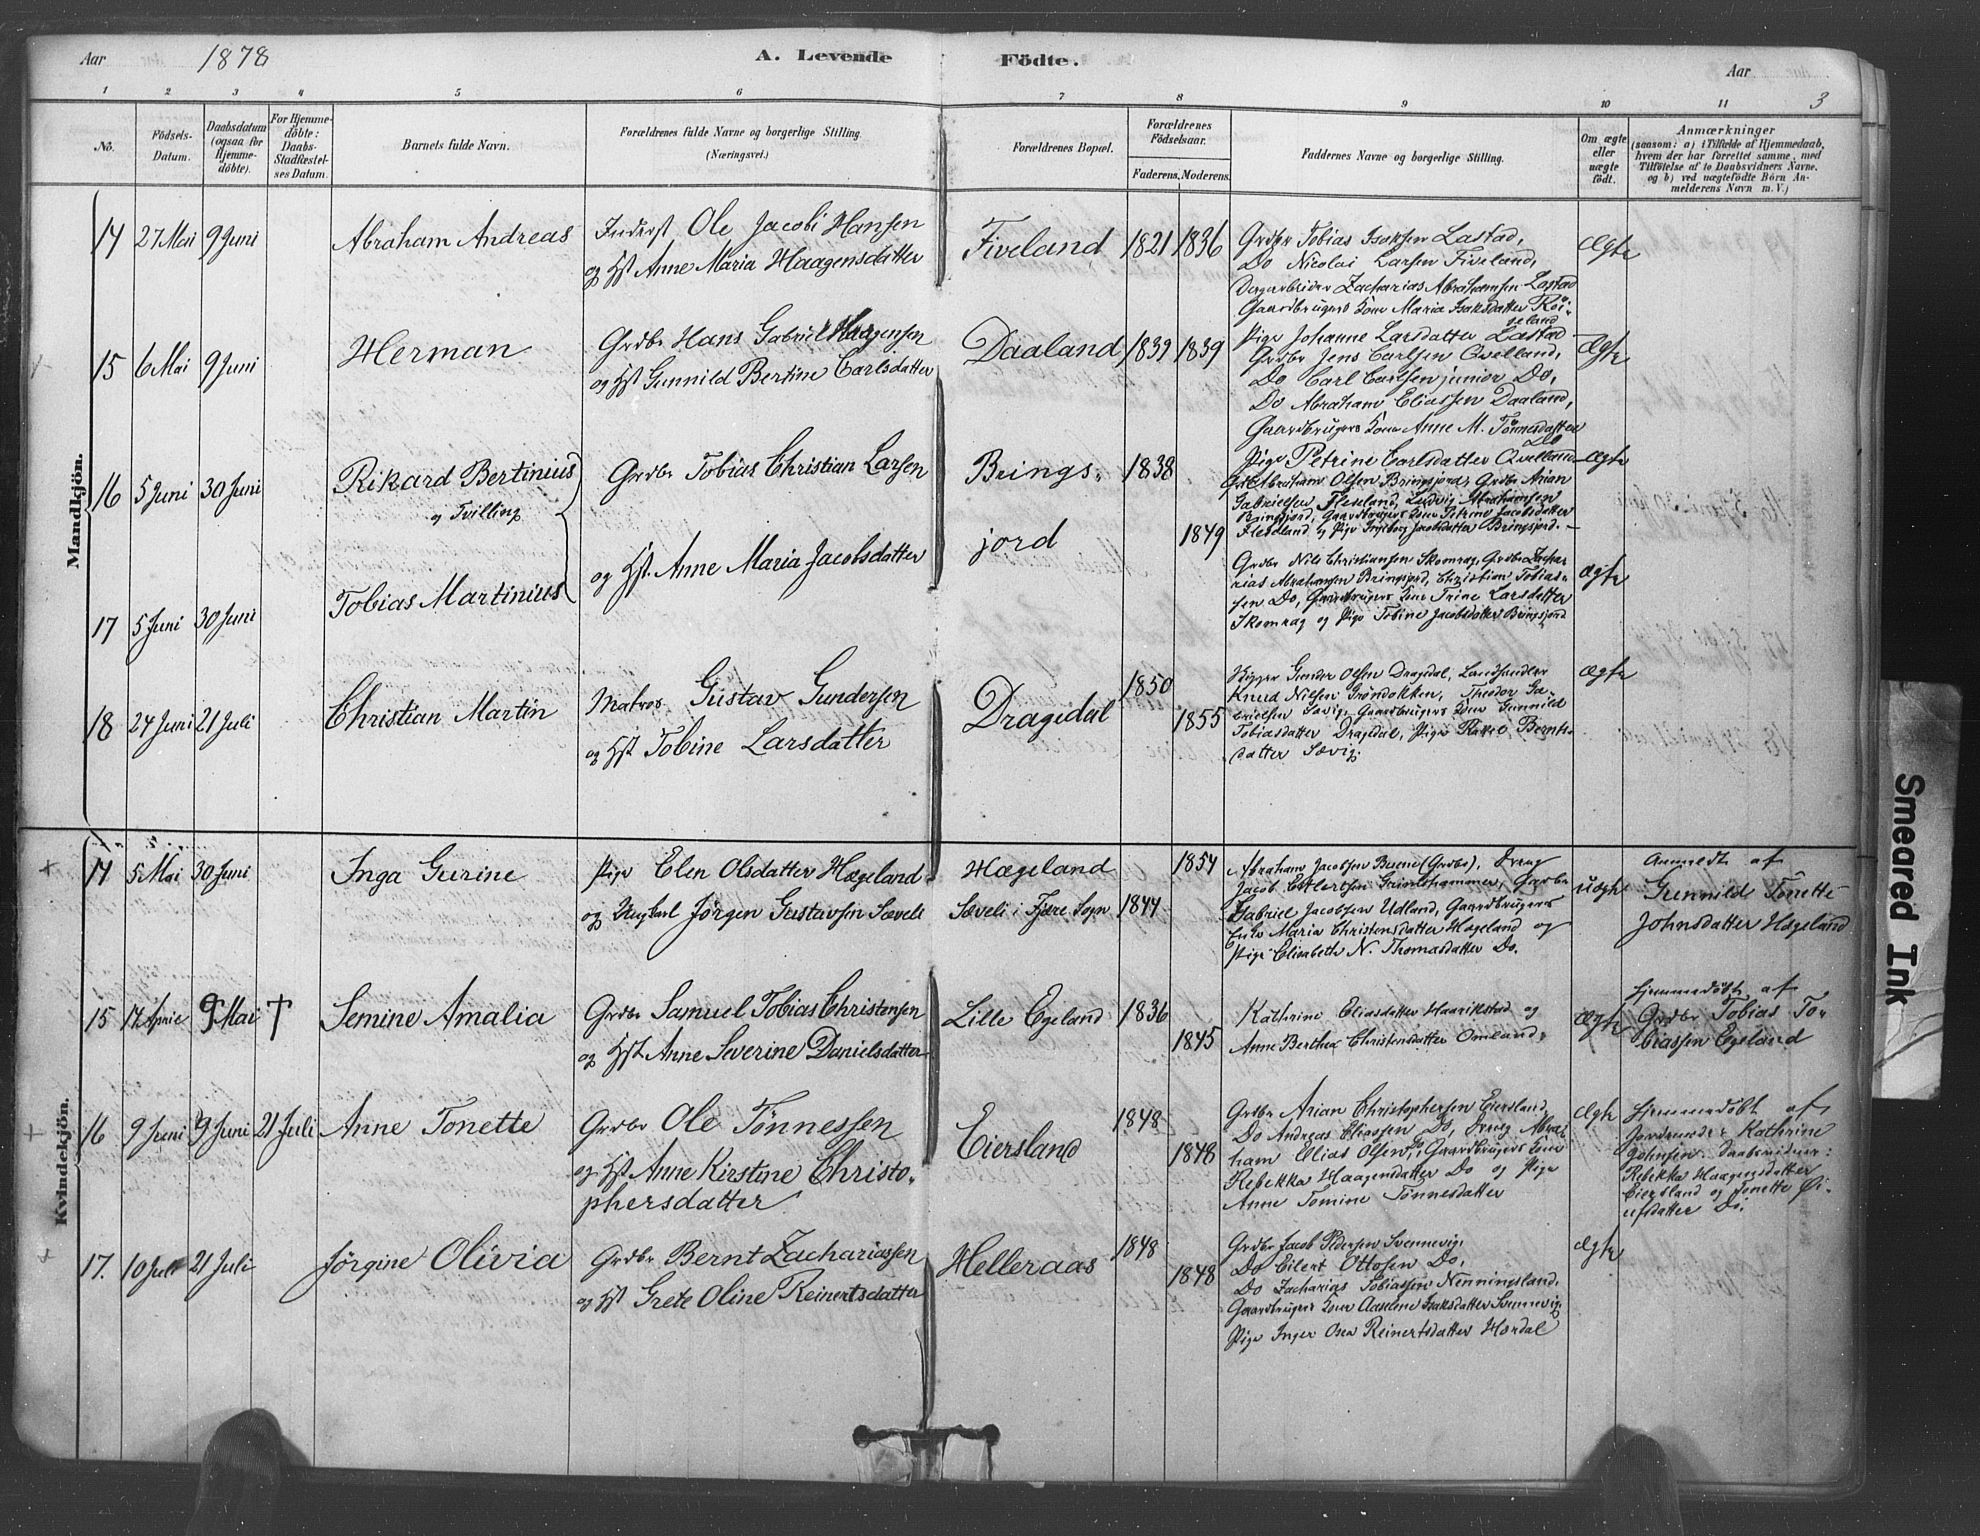 Aar 1878 A. Levende Födte. Aar
1 2 3 4 5 6 7 8 9 10 11 3
No. Födsels-Datum. Daabsdatum (ogsaa for Hjemmedöbte). For Hjemmedöbte: Daabs-Stadfæstelses Datum. Barnets fulde Navn. Forældrenes fulde Navne og borgerlige Stilling. (Næringsvei.) Forældrenes Bopæl. Forældrenes Födselsaar. Faderens. Moderens. Faddernes Navne og borgerlige Stilling. Om ægte eller uægte födt. Anmærkninger (saasom: a) i Tilfælde af Hjemmedaab, hvem der har forrettet samme, med Tilföielse af to Daabsvidners Navne, og b) ved uægtefödte Börn Anmelderens Navn m. V.)
Mandkjön.
14 27 Mai 9 Juni Abraham Andreas
Inderst Ole Jacobi Hansen
og Hst Anne Maria Haagensdatter
Fiveland 1821 1836
Grdbr Tobias Isaksen Lastad,
Do Nicolai Larsen Fiveland,
Dagarbeider Zacharias Abrahamsen Lastad
Gaardbrugers Kone Maria Isaksdatter Röi-
seland
Pige Johanne Larsdatter Lastad
Ægte
15 6 Mai 9 Juni Herman
Grdbr Hans Gabriel Haagensen
og Hst Gunnild Bertine Carlsdatter
Daaland 1839 1839
Grdbr Jens Carlsen Qvelland,
Do Carl Carlsen junior Do,
Do Abraham Eliassen Daaland,
Gaardbrugers Kone Anne M. Tönnesdatter
Do
Pige Petrine Carlsdatter Qvelland
Ægte
16 5 Juni 30 Juni Rikard Bertinius
og Tvilling
Grdbr Tobias Christian Larsen
og Hst. Anne Maria Jacobsdatter
Brings-
jord
1838 1849
Grdbr Abraham Olsen Bringsjord, Grdbr Arian
Gabrielsen Fleseland, Ludvig Abrahamsen
Bringsjord, Gaardbrugers Kone Petrine Jacobsdatter
Fleseland og Pige Ingeborg Jacobsdatter Bringsjord.
Ægte
17 5 Juni 30 Juni Tobias Martinius
Grdbr Nils Christiansen Skomrag, Grdbr Zacha-
rias Abrahamsen Bringsjord, Christian Tobias-
sen Do, Gaardbrugers Kone Trine Larsdatter
Skomrag og Pige Tobine Jacobsdatter Bringsjord
Ægte
18 24 Juni 21 Juli Christian Martin
Matros Gustav Gundersen
og Hst Tobine Larsdatter
Dragedal 1850 1855
Skipper Gunder Olsen Dragedal, Landhandler
Knud Nilsen Gröndokken, Theodor Ga-
brielsen Sævig, Gaardbrugers Kone Gunnild
Tobiasdatter Dragedal, Pige Bernts-
datter Sævig.
Ægte
Kvindekjön.
14 5 Mai 30 Juni Inga Gurine
Pige Elen Olsdatter Hægeland
og Ungkarl Jörgen Gustavsen Sæveli
Hægeland
Sæveli i Fjære Sogn
1854 1844
Abraham Jacobsen Buene (Grdbr), Dreng
Jacob Grimlshammer, Grdbr
Gabriel Jacobsen Udland, Gaardbrugers
Enke Maria Christensdatter Hægeland og
Pige Elisabeth N. Thomasdatter Do.
Uægte
Anmeldt af
Gunnild Tonette
Johnsdatter Hægeland
15 14 April 9 Mai † Semine Amalia
Grdbr Samuel Tobias Christensen
og Hst Anne Severine Danielsdatter
Lille Egeland 1836 1845
Kathrine Eliasdatter Haarikstad og
Anne Berthea Christensdatter Omland,
Ægte
Hjemmedöbt af
Grdbr Tobias To-
biassen Egeland
16 9 Juni 9 Juni 21 Juli Anne Tonette
Grdbr Ole Tönnessen
og Hst Anne Kirstine Christo-
phersdatter
Eiersland 1848 1848
Grdbr Arian Christophersen Eiersland,
Do Andreas Eliassen Do, Dreng Abra-
ham Elias Olsen, Do, Gaardbrugers Kone
Rebekka Haagensdatter Do og Pige
Anne Tomine Tönnesdatter
Ægte
Hjemmedöbt af
Jordmoder Kathrine
Johnsen. Daabsvidner:
Rebekka Haagensdatter
Eiersland og Tonette Ei-
lifsdatter Do.
17. 10 Juli 21 Juli Jörgine Olivia
Grdbr Bernt Zachariassen
og Hst Grete Oline Reinertsdatter
Helleraas 1848 1848
Grdbr Jacob Pedersen Svennevig,
Do Eilert Ottosen Do,
Do Zacharias Tobiassen Nenningsland,
Gaardbrugers Kone Aaselene Isaksdatter Svennevig,
Pige Inger Osea Reinertsdatter Hordal
Ægte
Smeared Ink